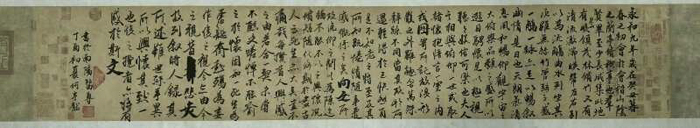 永和九年歲在癸丑暮
春之初會于會稽山陰
之蘭亭脩稧事也羣
賢畢至少長咸集此地
有崇山峻領茂林脩竹又有
清流激湍暎帶左右引
以為流觴曲水列坐其
次雖無絲竹管弦之盛
一觴一詠亦足以暢敘
幽情是日也天朗氣清
惠風和暢仰觀宇宙之
大俯察品類之盛所以
遊目騁懷足以極視
聽之娛信可樂也夫人
之相與俯仰一世或取
諸懷抱悟言一室之內
或因寄所託放浪形
骸之外雖趣舍萬殊
靜躁不同當其欣於所
遇暫得於己快然自足
不知老之將至及其
所之既惓情隨事遷
感慨係之矣向之所
欣俛仰之間以為陳迹
猶不能不以之興懷況
脩短隨化終期於盡古
人云死生亦大矣豈不
痛哉每攬昔人興感
之由若合一契未嘗
不臨文嗟悼不能喻
之於懷固知一死生為
虛誕齊彭殤為妄
作後之視今亦由今
之視昔悲夫
故列敘時人錄其
所述雖世殊事異
所以興懷其致一
也後之攬者亦將有
感於斯文
書於南陽
丁酉初夏